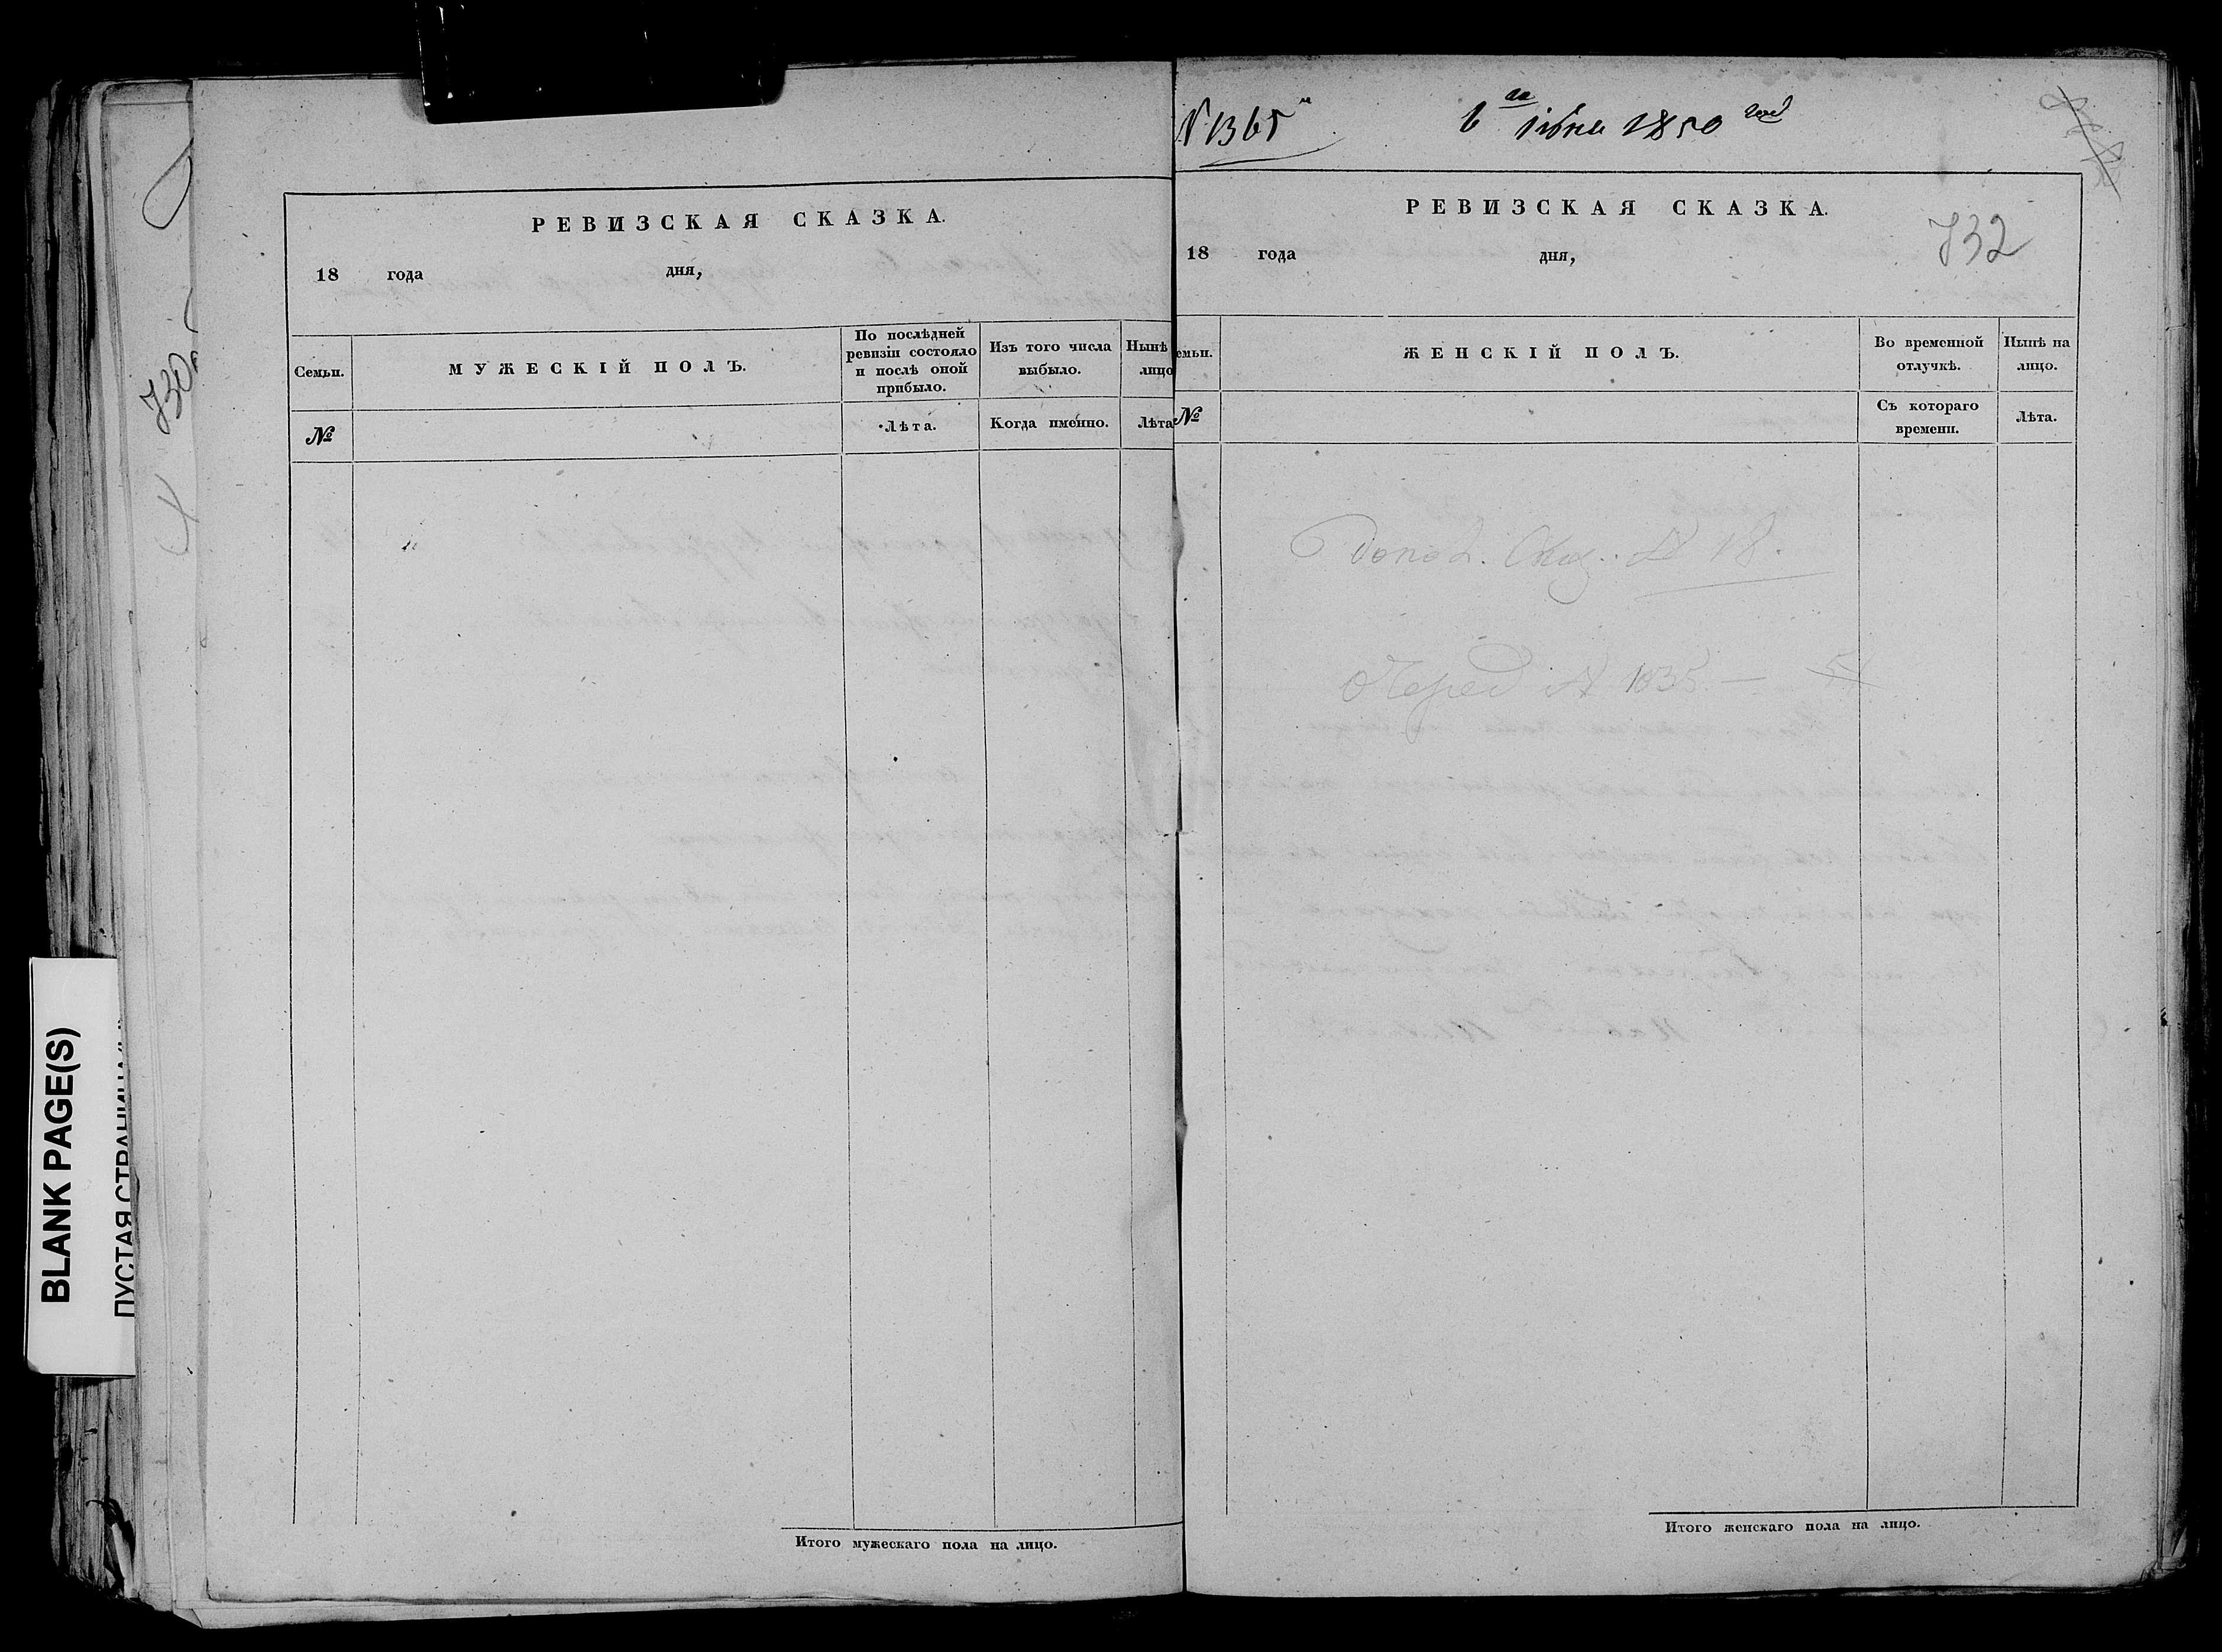 № 1365
6го Іюня 1850 года
730
РЕВИЗСКАЯ СКАЗКА.
18 года дня,
Семьи.
МУЖЕСКІЙ ПОЛЪ.
По послѣдней ревизіи состояло и послѣ оной прибыло.
Изъ того числа выбыло.
Нынѣ
лицо
№
Лѣта.
Когда именно.
Лѣта
Итого мужескаго пола на лицо.
РЕВИЗСКАЯ СКАЗКА.
732
18 года дня,
емьи.
ЖЕНСКІЙ ПОЛЪ.
Во временной отлучкѣ.
Нынѣ на лицо.
№
Съ котораго времени.
Лѣта.
№ 18.
Очеред № 1035 —
Итого женскаго пола на лицо.
BLANK PAGE(S)
ПУСТАЯ СТРАНИЦА